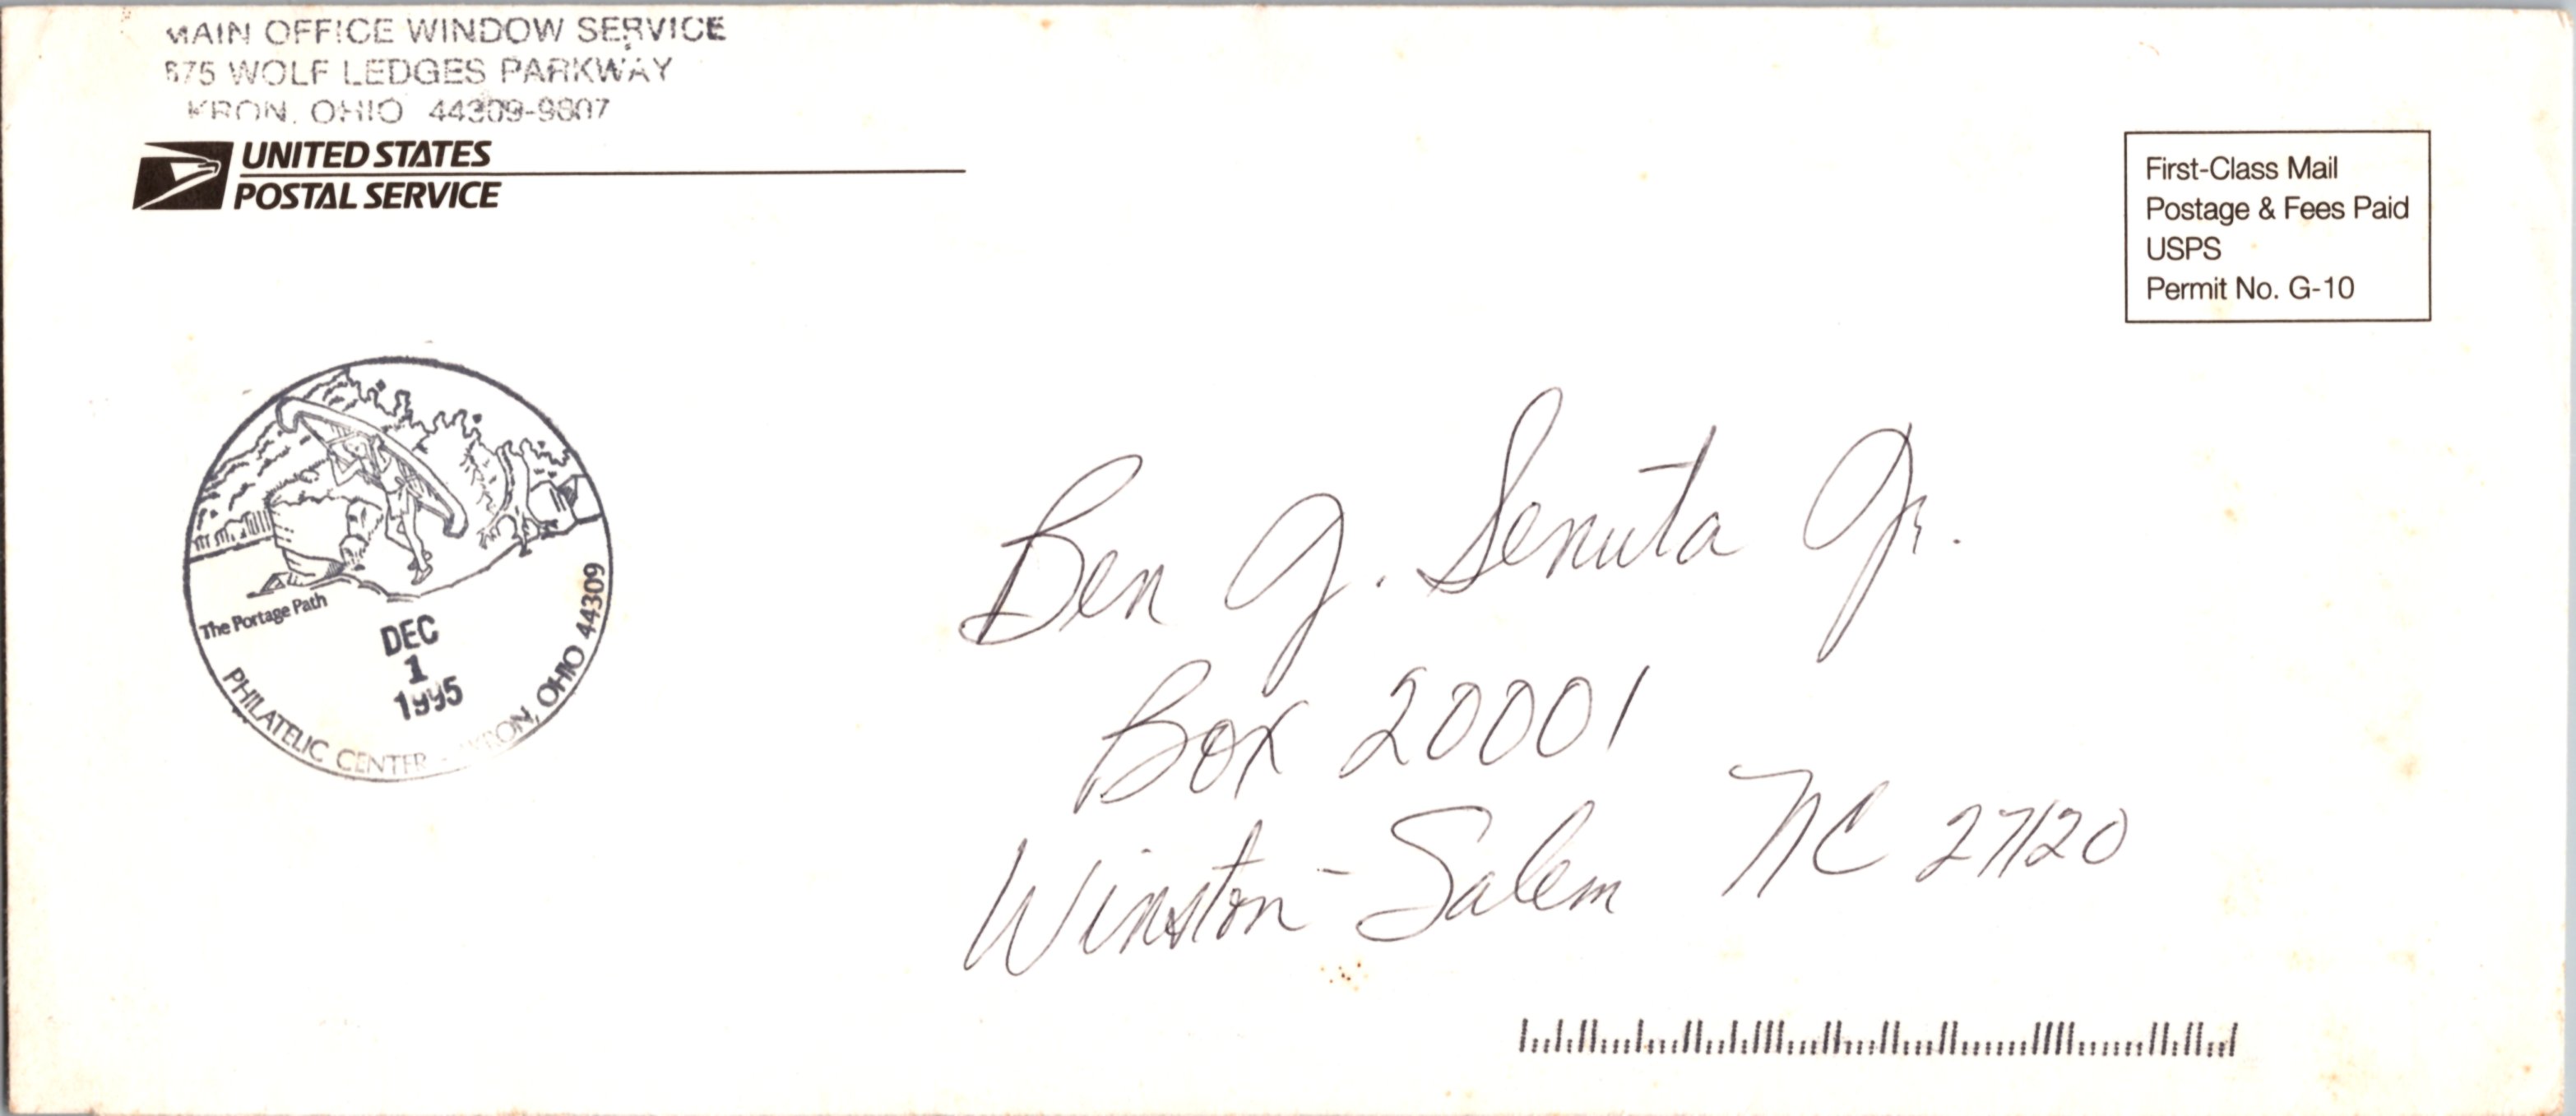 MAIN OFFICE WINDOW SERVICE
675 WOLF LEDGES PARKWAY
KRON, OHIO 44309-9807
UNITED STATES
POSTAL SERVICE
First-Class Mail
Postage & Fees Paid
USPS
Permit No. G-10
The Portage Path
DEC
1
1995
PHILATELIC CENTER - AKRON, OHIO 44309
Ben J. Senuta Jr.
Box 20001
Winston-Salem NC 27120